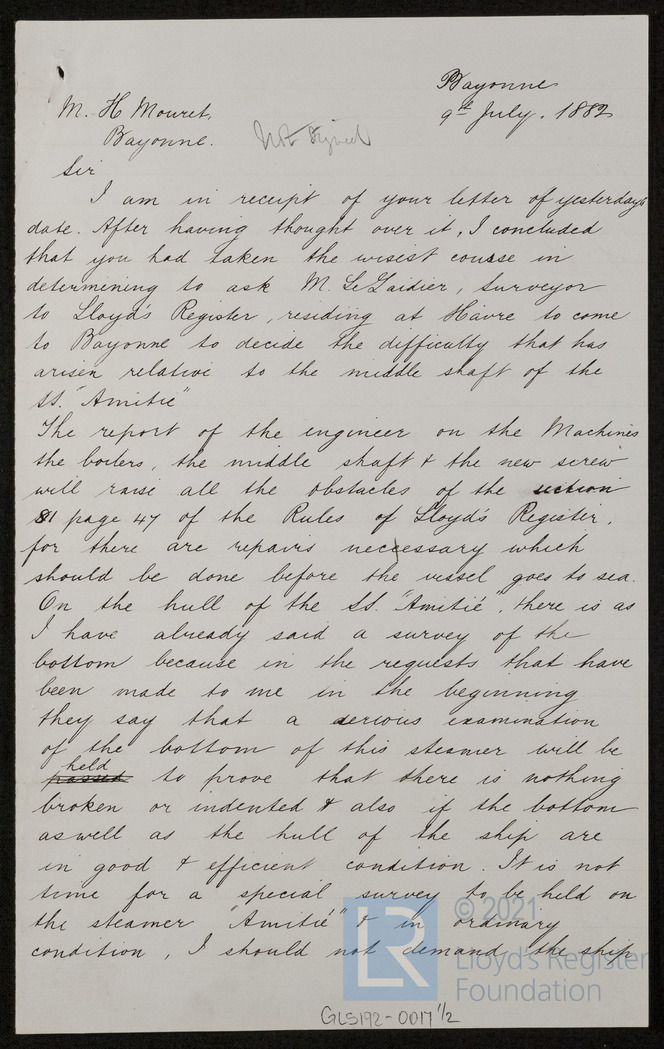 Bayonne
9th July. 1882
M. H Mouret,
Bayonne.
Not signed
Sir
I am in receipt of your letter of yesterday's
date. After having thought over it, I concluded
that you had taken the wisest course in
determining to ask M. Le Gaidier, Surveyor
to Lloyd's Register, residing at Hâvre to come
to Bayonne to decide the difficulty that has
arisen relative to the middle shaft of the
SS. "Amitié"
The report of the engineer on the Machines
the boilers, the middle shaft & the new screw
will raise all the obstacles of the section
81 page 47 of the Rules of Lloyd's Register,
for there are repairs necessary which
should be done before the vessel goes to sea.
On the hull of the SS. "Amitié", there is as
I have already said a survey of the
bottom because in the requests that have
been made to me in the beginning
they say that a serious examination
of the bottom of this steamer will be
held
passed to prove that there is nothing
broken or indented & also if the bottom
as well as the hull of the ship are
in good & efficient condition. It is not
time for a special survey to be held on
the steamer "Amitié" & in ordinary
condition, I should not demand the ship
LR
© 2021
Lloyd's Register
Foundation
GLS192-0017 1/2